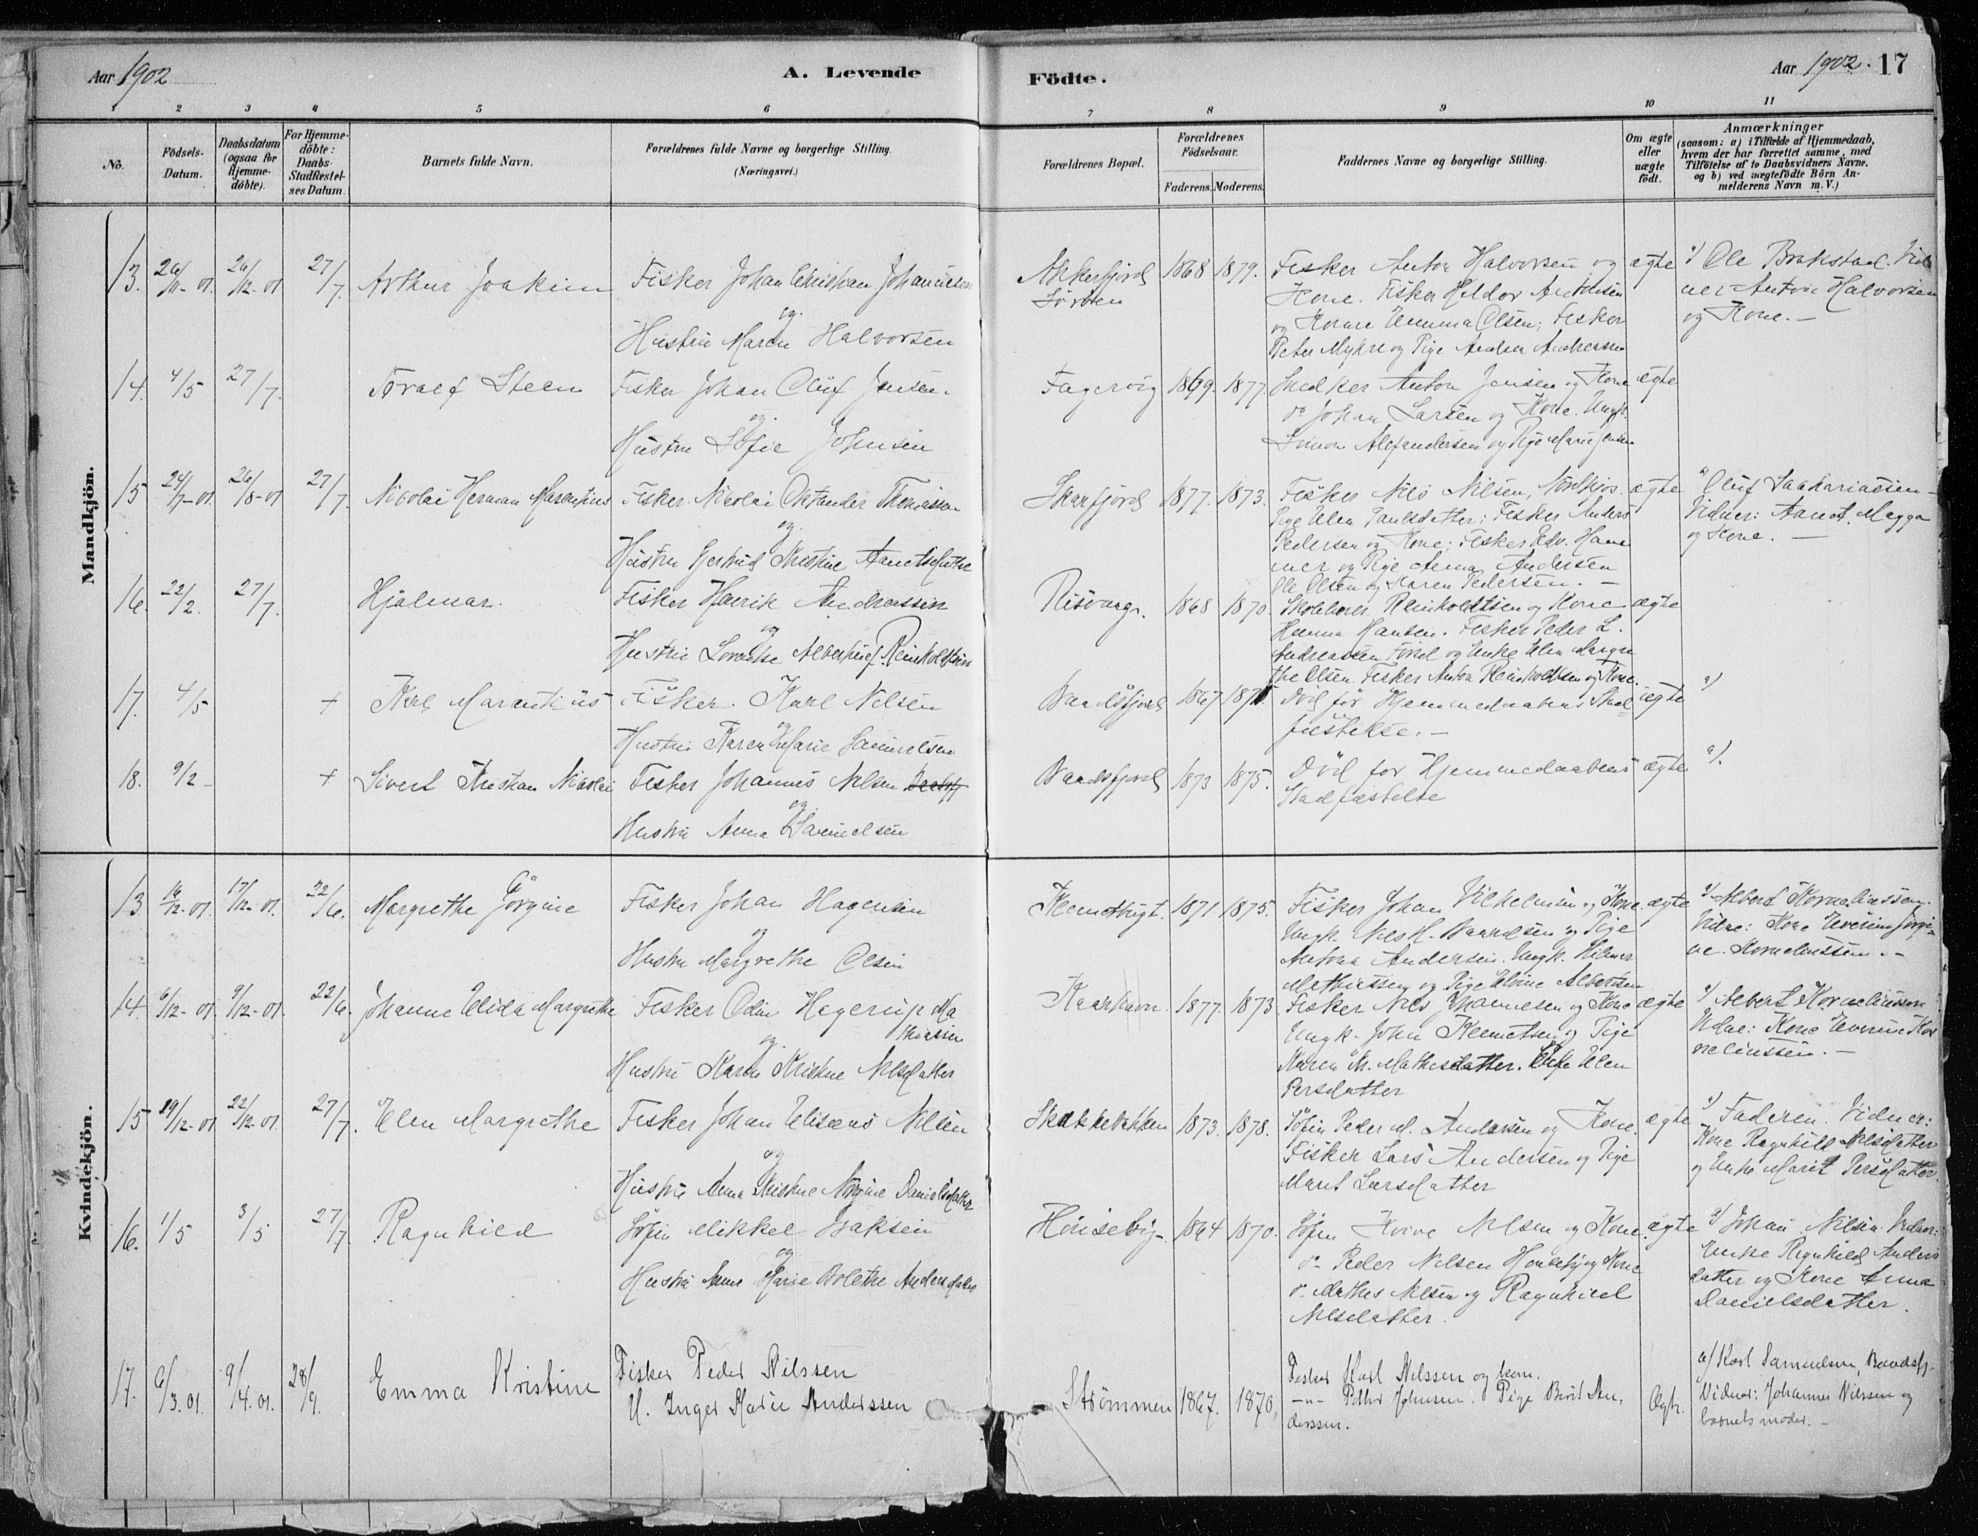 Aar 1902
A. Levende
Födte.
Aar 1902. 17
1 2 3 4 5 6 7 8 9 10 11
No.
Födsels-
Datum.
Daabsdatum
(ogsaa for
Hjemme-
döbte).
For Hjemme-
döbte:
Daabs-
Stadfæstel-
ses Datum.
Barnets fulde Navn.
Forældrenes fulde Navne og borgerlige Stilling.
(Næringsvei.)
Forældrenes Bopæl.
Forældrenes
Födselsaar.
Faderens. Moderens.
Faddernes Navne og borgerlige Stilling.
Om ægte
eller
uægte
födt.
Anmærkninger
(saasom: a) i Tilfælde af Hjemmedaab,
hvem der har forrettet samme, med
Tilföielse af to Daabsvidners Navne,
og b) ved uægtefödte Börn An-
melderens Navn m. V.)
Mandkjön.
13. 26/11-01. 26/12-01 27/7. Arthur Joakim Fisker Johan Christian Johannesen
og
Hustru Maren Halvorsen
Akkarfjord
Sørøen
1868 1879.
Fisker Anton Halvorsen og
Kone. Fisker Haldor Antonsen
og Kone Emma Olsen; Fisker
Peter Myhre og Pige Andrea Andreassen
ægte
a) Ole Brakstad. Vid-
ner Anton Halvorsen
og Kone. —
14. 4/5 27/7. Toralf Steen Fisker Johan Oluf Jensen.
og
Hustru Sofie Johnsen
Fagervig 1869. 1877.
Snedker Anton Jensen og Kone
do Johan Larsen og Kone. Ungk.
Simon Alexandersen og Pige Marie Jensen
ægte
15 24/7-01 26/8-01 27/7. Nicolai Herman Marentius Fisker Nicolai Thomassen
og
Hustru Gjertrud Kristine
1877. 1873.
Fisker Nils Nilsen,
Pige Elen Paulsdatter; Fisker Anders
Pedersen og Kone; Fisker Edv. Ham-
mer og Pige Anna Andersen
Ole Olsen og Karen Pedersen. —
ægte
a) Oluf Zakariassen —
Vidner: Magga
og Kone. —
16. 22/2. 27/7. Hjalmar. Fisker Henrik Andreassen
og
Hustru Lorentse Albertine Reinholdtsen
Risvaag. 1868 1870.
Reinholdtsen og Kone
Hanna Hansen. Fisker Peder L.
Andreassen og Enke Elen Margre
the Olsen. Fisker Anton Reinholdtsen og Kone.
ægte
17. 4/5 + Karl Marentius Fisker Karl Nilsen
og
Hustru Karen Marie Samuelsen
Baadsfjord 1867
Död för Hjemmedaabens Stad-
fæstelse. —
ægte
a)
18. 9/2 — + Sivert Kristian Nicolai Fisker Johannes Nilsen
og
Hustru Anna Samuelsen
Baadsfjord 1873 1875.
Död for Hjemmedaabens
Stadfæstelse
ægte
a).
Kvindekjön.
13. 16/12-01. 17/12-01. 22/6. Margrethe Jörgine Fisker Johan Hagensen
og
Hustru Margrethe Olsen
1871 1875.
Fisker Johan Vilhelmsen og Kone.
Ungk. Nils H. Baardsen og Pige
Antona Andersen. Ungk. Hilmar
Mathiassen og Pige Elvine Albertsen
ægte
a) Albert Korneliussen.
Vidne: Kone Everine Jörgi-
ne Korneliussen. —
14. 6/12-01. 9/12-01. 22/6. Johanne Elida Margrethe Fisker Odin Hagerup Ma
thiassen
og
Hustru Karen Kristine Nilsdatter
Kaarhavn. 1877. 1873
Fisker Nils Samuelsen og Kone
Ungk. John Klemetsen og Pige
Karen M. Mathisdatter. Elen
Persdatter
ægte
a) Albert Korneliussen
Vidne: Kone Everine Kor
neliussen. —
15 19/12-01 22/12-01. 27/7. Elen Margrethe Fisker Johan Eliseus Nilsen
og
Hustru Anna Kristine Danielsdatter
1873. 1878.
Söfin Peder M. Andersen og Kone.
Fisker Lars Andersen og Pige
Marit Larsdatter
ægte
a) Faderen. Vidner:
Kone Ragnhild Nilsdatter
og Enke Marit Persdatter.
16. 1/5 3/5 27/7. Ragnhild Söfin Mikkel Isaksen
og
Hustru Anne Marie Bolethe Andersdatter
Hönseby — 1864 1870.
Söfin Nilsen og Kone.
do Peder Nilsen Hönseby og Kone
do Mathis Nilsen og Ragnhild
Nilsdatter.
ægte
a) Johan Nilsen. Vidner:
Enke Ragnhild Anders
datter og Kone Anna
Danielsdatter.
17. 6/3.01. 9/4.01. 28/9. Emma Kristine Fisker Peder Nilssen
H. Inger Karie Anderssen
Strömmen 1867. 1870,
Fisker Karl Nilssen og kone.
—"— Petter Johnsen. Pige Berit An-
derssen.
Ægte.
a/ Karl Samuelsen, Baadsfj.
Vidner: Johannes Nilssen og
barnets moder. —